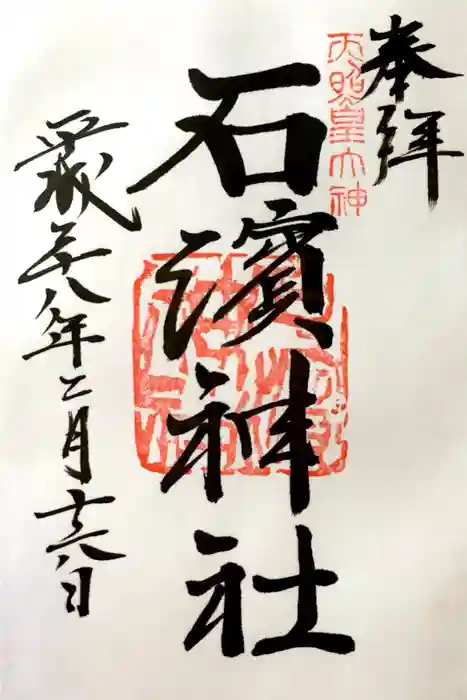 奉拝
天照皇大神
石濱神社
平成二十八年二月十八日